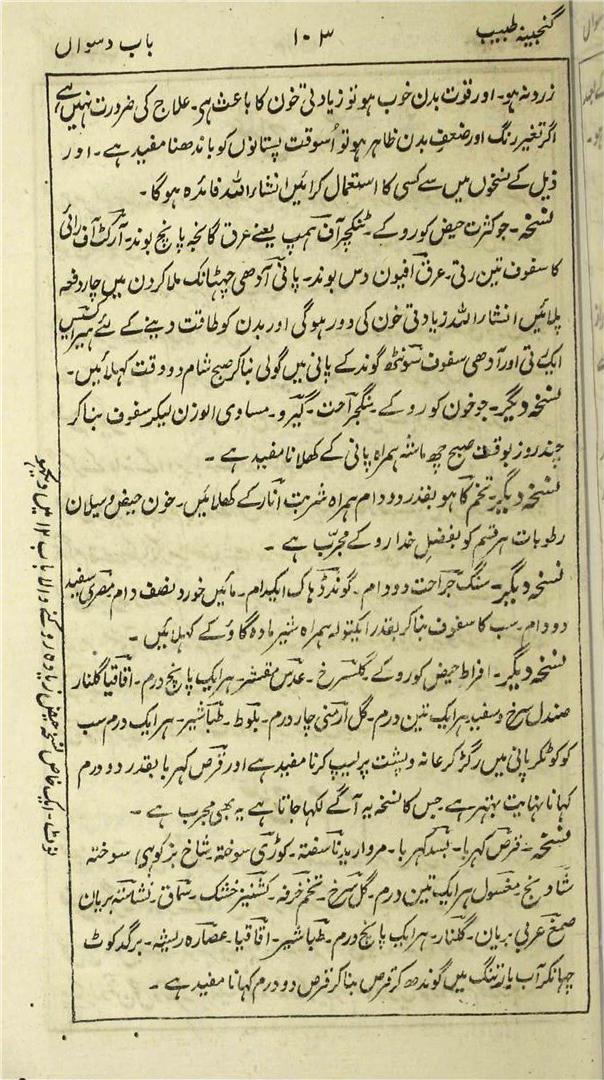 گنجینہ طبیب
۱۰۳
باب دسواں
زرد نہ ہو۔ اور قوت بدن خوب ہو تو زیادتی خون کا باعث ہی۔ علاج کی ضرورت نہیں ہے،
اگر تغیر رنگ اور ضعف بدن ظاہر ہو تو اُسوقت پستانوں کو باندھنا مفید ہے۔ اور
ذیل کے نسخوں میں سے کسی کا استعمال کرائیں انشاء اللہ فائدہ ہوگا۔
نسخہ۔ جو کثرت حیض کو روکے۔ ٹنکچر آف ہمپ یعنے عرق گانجہ پانچ بوند۔ آرگٹ آف رائی
کا سفوف تین رتی۔ عرق افیون دس بوند۔ پانی آدھی چھٹانک ملا کر دن میں چار دفعہ
پلائیں انشاء اللہ زیادتی خون کی دور ہوگی اور بدن کو طاقت دینے کے لئے ہیراکسیس
ایک رتی اور آدھی سفوف سونٹھ گوند کے پانی میں گولی بنا کر صبح شام دو وقت کہلائیں۔
نسخہ دیگر۔ جو خون کو روکے سنگجراحت۔ گیرو۔ مساوی الوزن لیکر سفوف بنا کر
چند روز بوقت صبح چھ ماشہ ہمراہ پانی کے کھلانا مفید ہے۔
نسخہ دیگر۔ تخم کاہو بقدر دو دام ہمراہ شربت انار کے کھلائیں۔ خون حیض و سیلان
رطوبات ہر قسم کو بفضل خدا روکے مجرّب ہے۔
نسخہ دیگر۔ سنگ جراحت دو دام۔ گوند ڈہاک ایکدام۔ مائیں خورد نصف دام مصری سفید
دو دام۔ سب کا سفوف بنا کر بقدر ایکتولہ ہمراہ شیر مادہ گاؤ کے کہلائیں۔
نسخہ دیگر۔ افراط حیض کو روکے۔ گلسرخ۔ عدس مقشر۔ ہر ایک پانچ درم۔ اقاقیا گلنار
صندل سرخ و سفید ہر ایک تین درم۔ گل ارمنی چار درم۔ بلوط۔ طباشیر۔ ہر ایک درم سب
کو کوٹکر پانی میں رگڑ کر عانہ و پشت پر لیپ کرنا مفید ہے اور قرص کہربا بقدر دو درم
کہانا نہایت بہتر ہے جس کا نسخہ یہ آگے لکھا جاتا ہے یہ بھی مجرب ہے۔
نسخہ۔ قرص کہربا۔ بسد کہربا۔ مروارید ناسفتہ۔ کوڑی سوختہ۔ شاخ بزکوہی سوختہ
شادنج مغسول ہر ایک تین درم۔ گل سرخ۔ تخم خرفہ۔ کشنیز خشک۔ سماق۔ نشاستہ بریان
صمغ عربی بریان۔ گلنار۔ ہر ایک پانچ درم۔ طباشیر۔ اقاقیا۔ عصارہ ریشہ۔ برگد کوٹ
چہانکر آب بارتنگ میں گوندھ کر قرص بنا کر قرص دو درم کہانا مفید ہے۔
نوٹ۔ ایک خاص نسخہ حیض زیادہ روکنے والا باب ۱۲ میں دیکھو